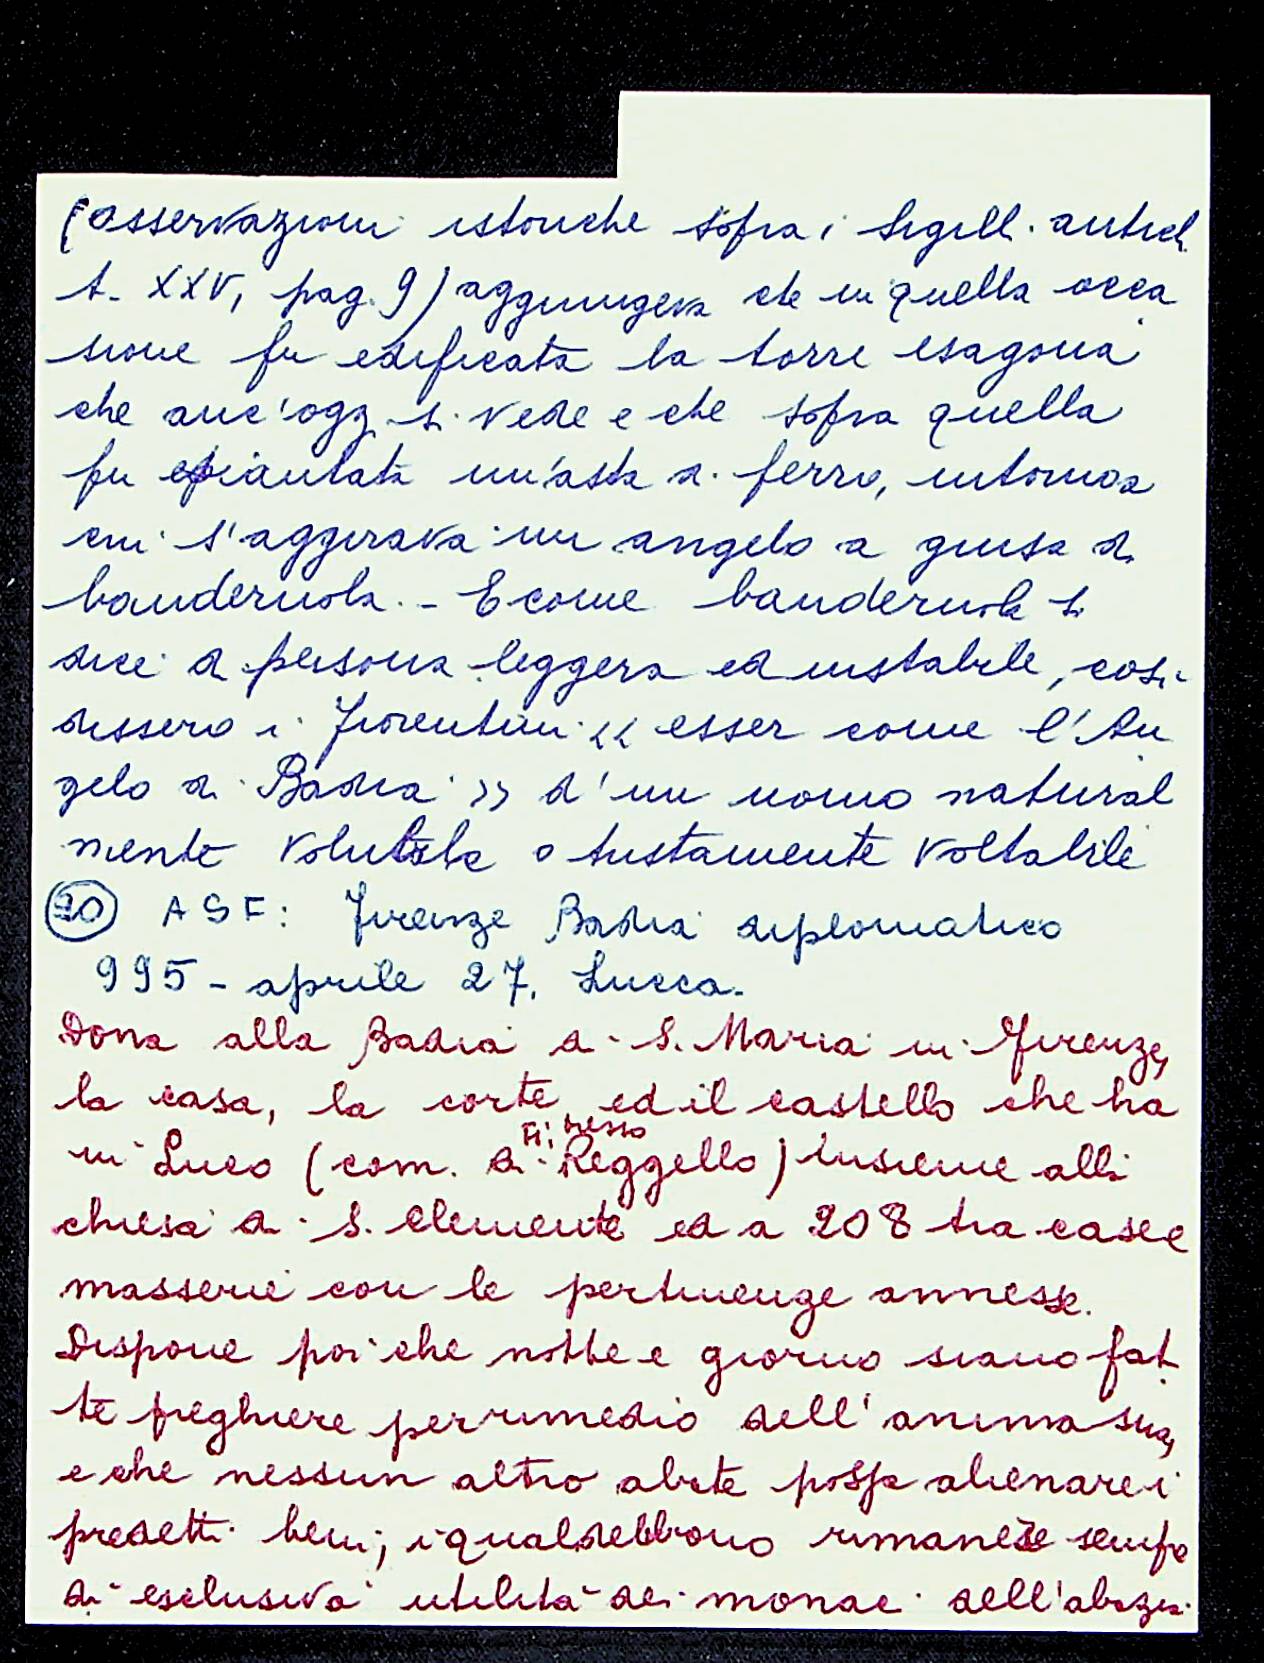 (osservazioni istoriche sopra i sigill. antich.
t. XXV, pag. 9) aggiungeva che in quella occa
sione fu edificata la torre esagona
che anc'oggi si vede e che sopra quella
fu piantata un'asta di ferro, intorno a
cui s'aggirava un angelo a guisa di
banderuola. - E come banderuola si
dice di persona leggera ed instabile, così
dissero i Fiorentini << esser come l'An
gelo di Badia >> d'un uomo natural
mente volubile o tristamente voltabile
20 ASF: Firenze Badia diplomatico
995 - aprile 27. Lucca.
Dona alla Badia di S. Maria in Firenze,
la casa, la corte, ed il castello che ha
in Luco (com. di Reggello) insieme alla
chiesa di S. Clemente ed a 208 tra case e
masserie con le pertinenze annesse.
Dispone poi che notte e giorno siano fat
te preghiere per rimedio dell'anima sua,
e che nessun altro abate possa alienare i
predetti beni; i quali debbono rimanere sempre
di esclusiva utilità dei monaci dell'abazia.